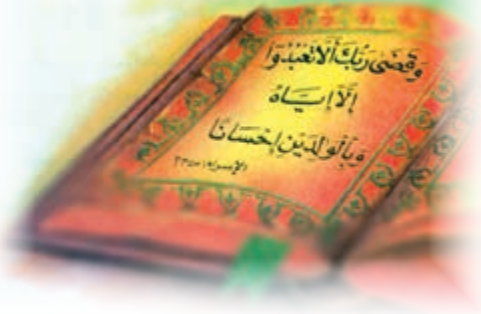 وَقَضَى رَبُّكَ أَلَّا تَعْبُدُوا
إِلَّا إِيَّاهُ
وَبِالْوَالِدَيْنِ إِحْسَانًا